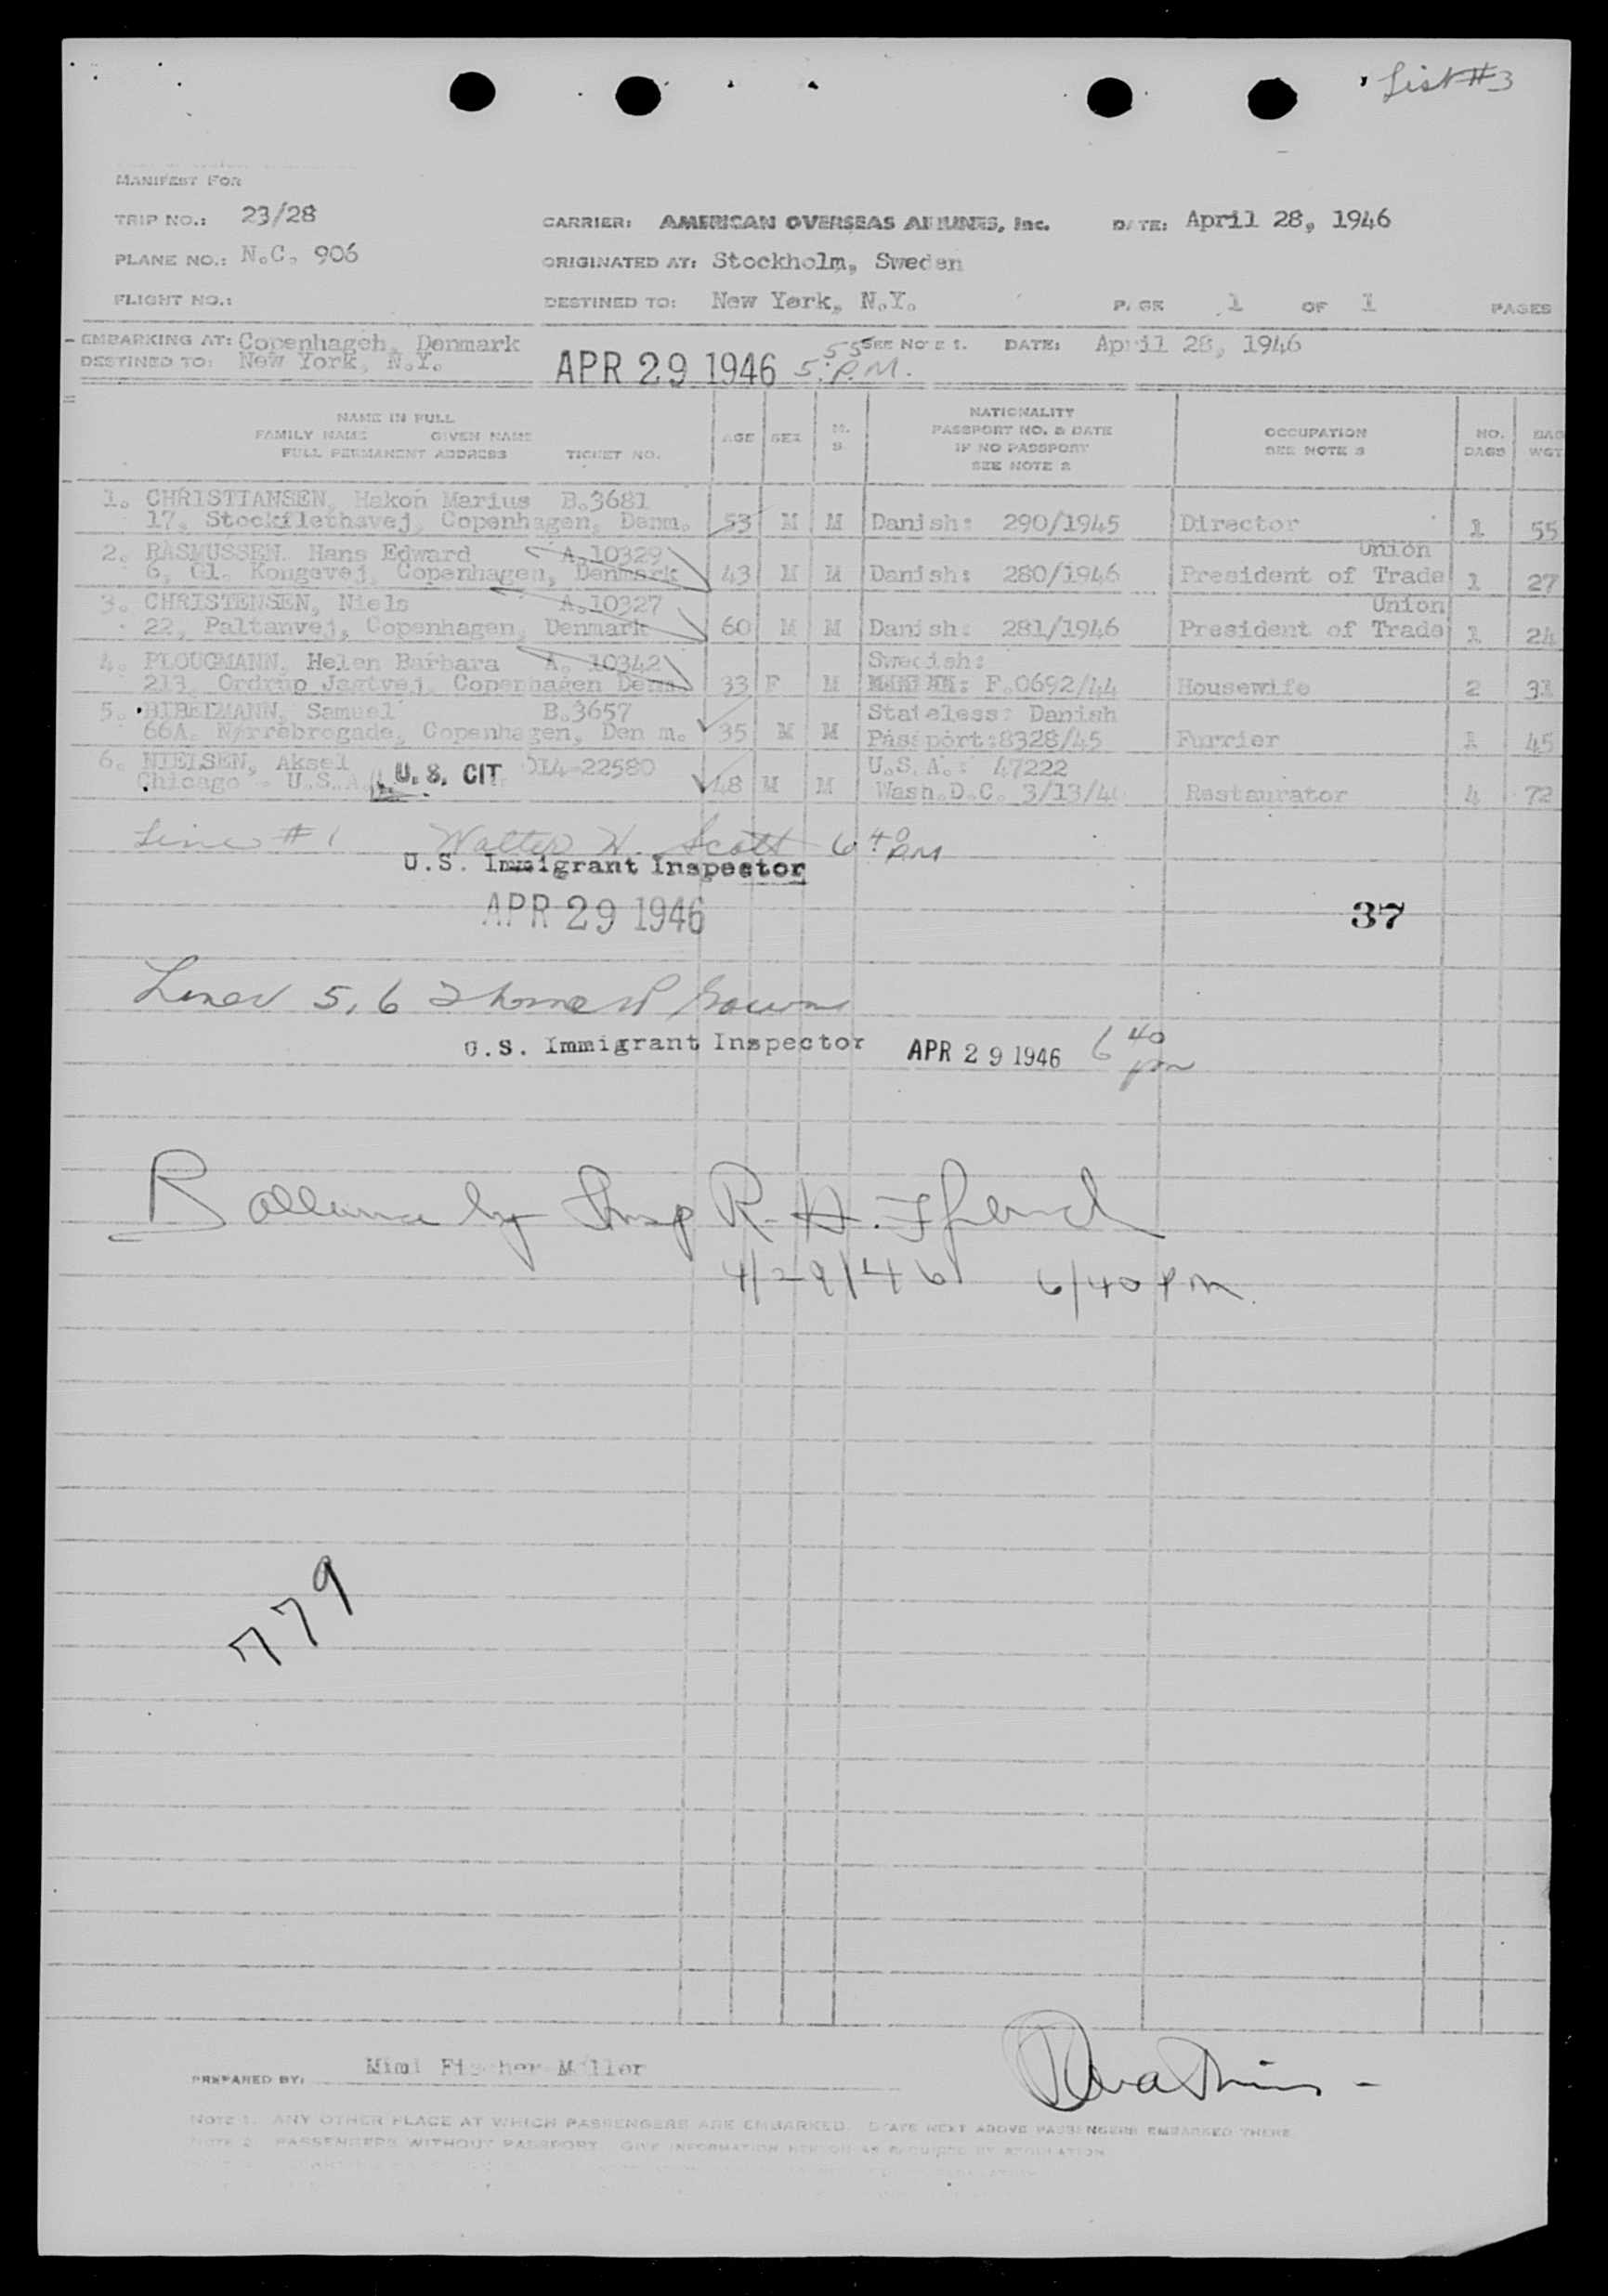 List #3
MANIFEST FOR
TRIP NO.: 23/28 CARRIER: AMERICAN OVERSEAS AIRLINES, Inc. DATE: April 28, 1946
PLANE NO.: N.C. 906 ORIGINATED AT: Stockholm, Sweden
FLIGHT NO.: DESTINED TO: New York, N.Y. PAGE 1 OF 1 PAGES
EMBARKING AT: Copenhagen, Denmark SEE NOTE 1. DATE: April 28, 1946
DESTINED TO: New York, N.Y. APR 29 1946 5:55 P.M.
NAME IN FULL
FAMILY NAME GIVEN NAME
FULL PERMANENT ADDRESS TICKET NO.
AGE SEX M. S
NATIONALITY
PASSPORT NO. & DATE
IF NO PASSPORT
SEE NOTE 2
OCCUPATION
SEE NOTE 3
NO. BAGS
BAG WGT
1. CHRISTIANSEN, Hakon Marius B.3681
17, Stockflethsvej, Copenhagen, Denm. 53 M M Danish: 290/1945 Director 1 55
2. RASMUSSEN, Hans Edward A.10329 Union
6, Gl. Kongevej, Copenhagen, Denmark 43 M M Danish: 280/1946 President of Trade 1 27
3. CHRISTENSEN, Niels A.10327 Union
22, Paltanvej, Copenhagen, Denmark 60 M M Danish: 281/1946 President of Trade 1 24
4. PLOUGMANN, Helen Barbara A. 10342 Swedish:
213, Ordrup Jagtvej, Copenhagen Denm. 33 F M F.0692/44 Housewife 2 33
5. BIBELMANN, Samuel B.3657 Stateless: Danish
66A. Nørrebrogade, Copenhagen, Den m. 35 M M Passport:8328/45 Furrier 1 45
6. NIELSEN, Aksel U. S. CIT 014-22580 U.S.A.: 47222
Chicago - U.S.A. 48 M M Wash.D.C. 3/13/46 Restaurator 4 72
Line #1 Walter W. Scott 6 40 PM
U.S. Immigrant Inspector
APR 29 1946
37
Lines 5, 6
U.S. Immigrant Inspector APR 29 1946 6 40 pm
Ballance by Insp R. H.
4/29/46 6/40 PM.
779
PREPARED BY: Mimi Fischer Møller
NOTE 1. ANY OTHER PLACE AT WHICH PASSENGERS ARE EMBARKED. STATE NEXT ABOVE PASSENGERS EMBARKED THERE
NOTE 2. PASSENGERS WITHOUT PASSPORT GIVE INFORMATION HEREON AS REQUIRED BY REGULATION